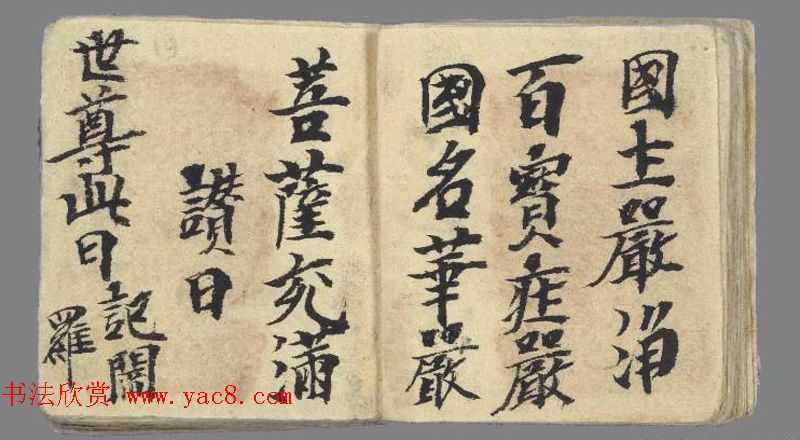 國土嚴净
百寶庄嚴
國名華嚴
菩薩充滿
讃曰
世尊此日記閻
羅
书法欣赏 www.yac8.com